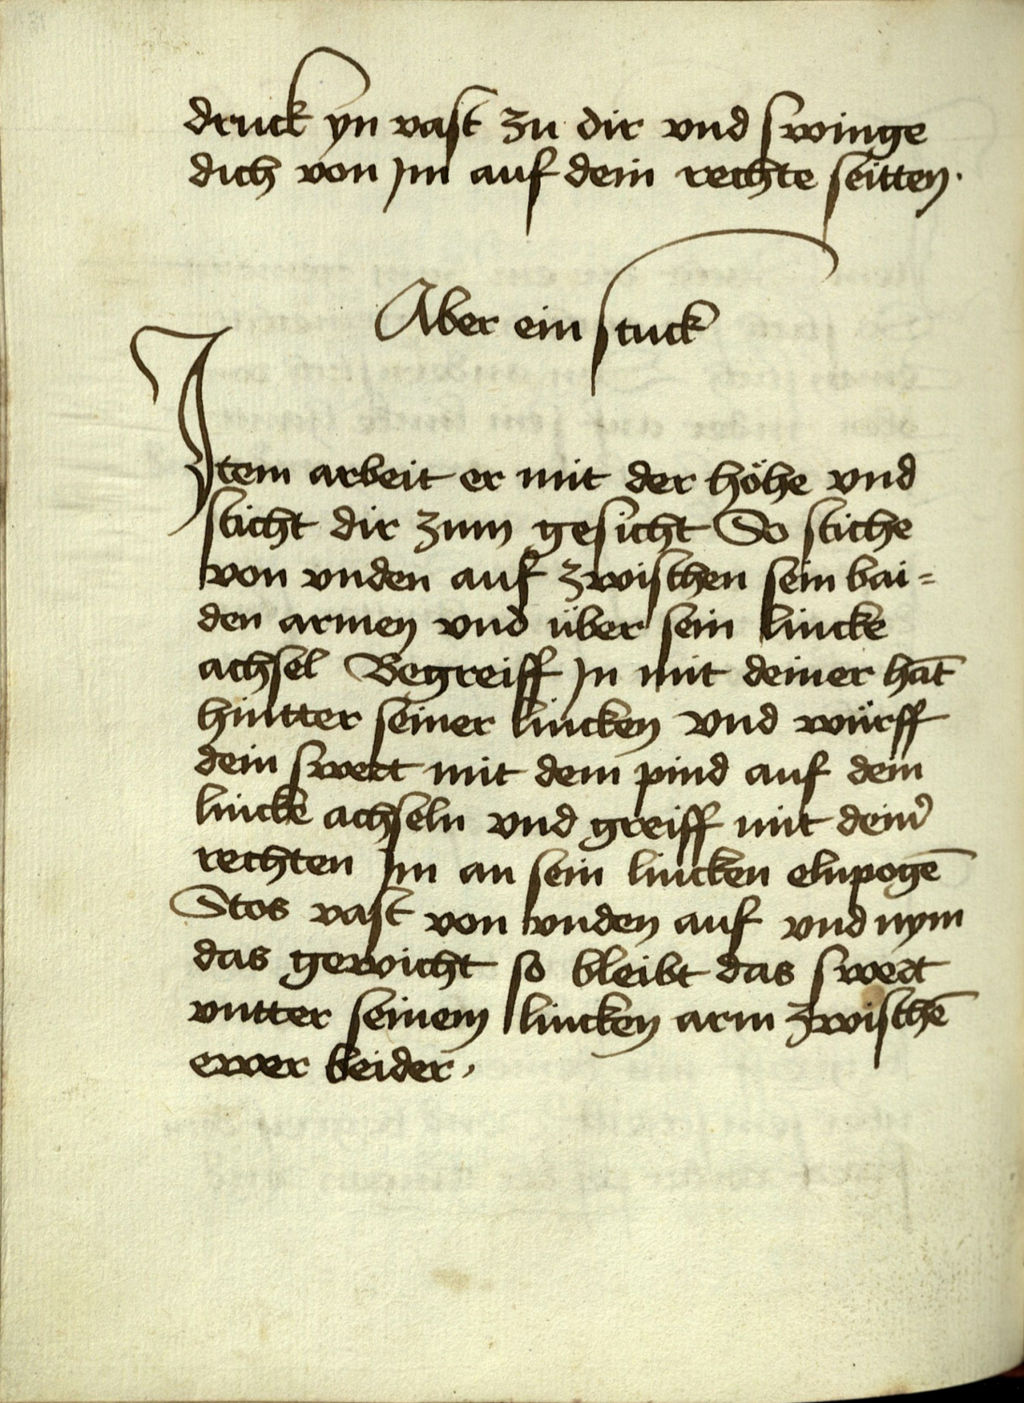 druck yn vast zu dir vnd swinge
dich von jm auf dein rechte seitten.
Aber ein stuck
Item arbeit er mit der höhe vnd
sticht dir zum gesicht So stiche
von vnden auf zwischen sein bai=
den armen vnd über sein lincke
achsel Begreiff jn mit deiner hāt
hintter seiner lincken vnd würff
dein swert mit dem pind auf dein
lincke achseln vnd greiff mit deinr̄
rechten jm an sein lincken elnpogē
Stos vast von vnden auf vnd nym
das gewicht so bleibt das swert
vntter seinem lincken arm zwischē
ewer beider.